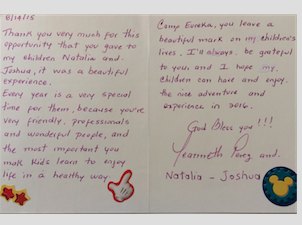 8/14/15
Thank you very much for this
opportunity that you gave to
my children Natalia and
Joshua, it was a beautiful
experience.
Every year is a very special
time for them, because you're
very friendly, professionals
and wonderful people, and
the most important you
mak kids learn to enjoy
life in a healthy way.
Camp Eureka, you leave a
beautiful mark on my children's
lives. I'll always, be grateful
to you, and I hope my
children can have and enjoy
the nice adventure and
experience in 2016.
God Bless you!!!
Jeanneth Perez and.
Natalia - Joshua